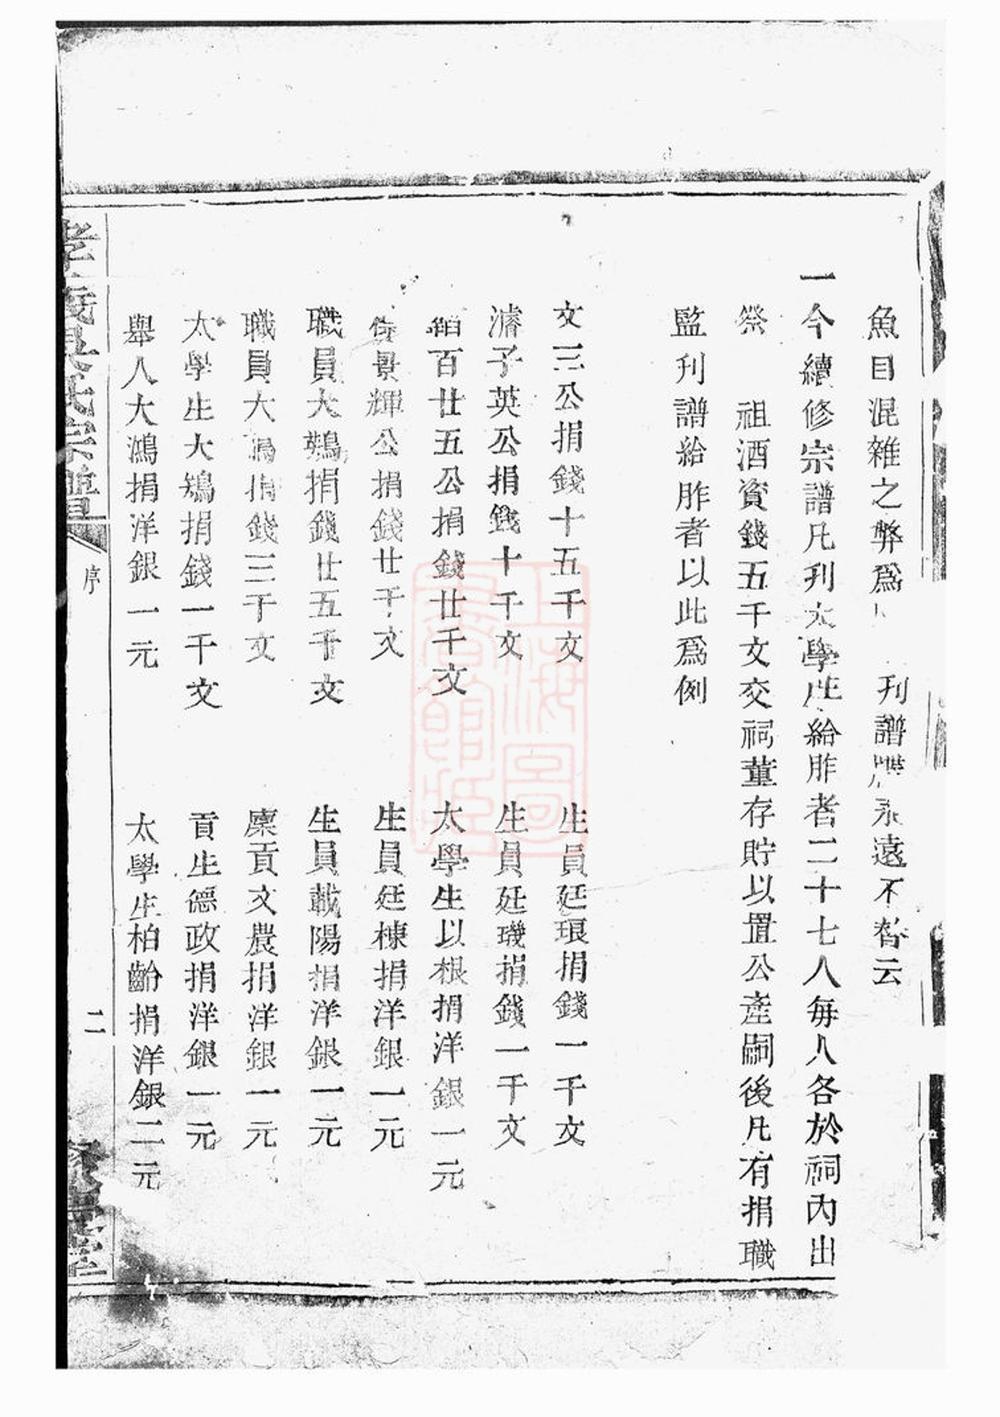 魚目混雜之弊爲 刊譜 永遠不替云
一今續修宗譜凡刋太學生給胙者二十七人每人各於祠內出
祭 祖酒資錢五千文交祠董存貯以置公產嗣後凡有捐職
監刋譜給胙者以此爲例
文三公捐錢十五千文 生員廷琅捐錢一千文
濬子英公捐錢十千文 生員廷璣捐錢一千文
百廿五公捐錢廿千文 太學生以根捐洋銀一元
景輝公捐錢廿千文 生員廷棟捐洋銀一元
職員大鵕捐錢廿五千文 生員載陽捐洋銀一元
職員大 捐錢三千文 廩貢文農捐洋銀一元
太學生大鴂捐錢一千文 貢生德政捐洋銀一元
舉人大鴻捐洋銀一元 太學生柏齡捐洋銀二元
孝義吳氏宗譜 序 二